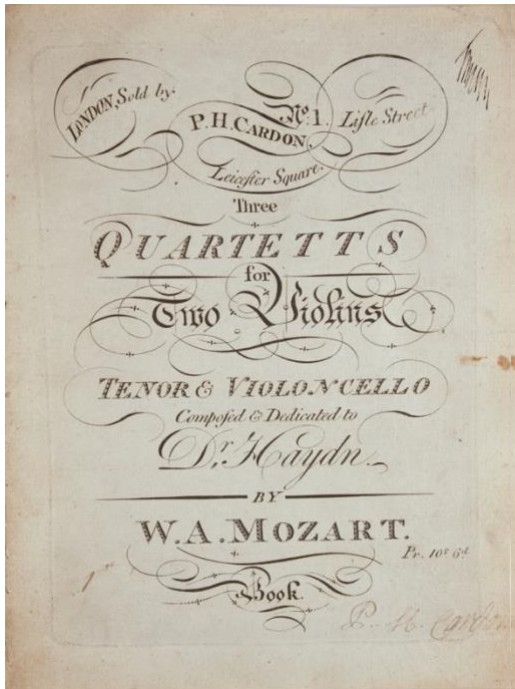 LONDON, Sold by
P. H. CARDON, No. 1. Lisle Street
Leicester Square.
Three
QUARTETTS
for
Two Violins
TENOR & VIOLONCELLO
Composed & Dedicated to
Dr. Haydn.
BY
W. A. MOZART.
Pr. 10s 6d
Book.
P. H. Cardon